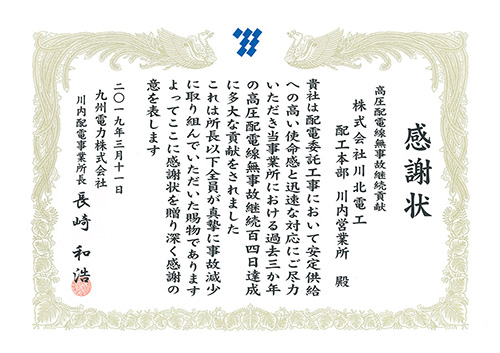 感謝状
高圧配電線無事故継続貢献
株式会社川北電工
配工本部 川内営業所 殿
貴社は配電委託工事において安定供給
への高い使命感と迅速な対応にご尽力
いただき当事業所における過去三か年
の高圧配電線無事故継続百四日達成
に多大な貢献をされました
これは所長以下全員が真摯に事故減少
に取り組んでいただいた賜物であります
よってここに感謝状を贈り深く感謝の
意を表します
二〇一九年三月十一日
九州電力株式会社
川内配電事業所長 長﨑 和浩